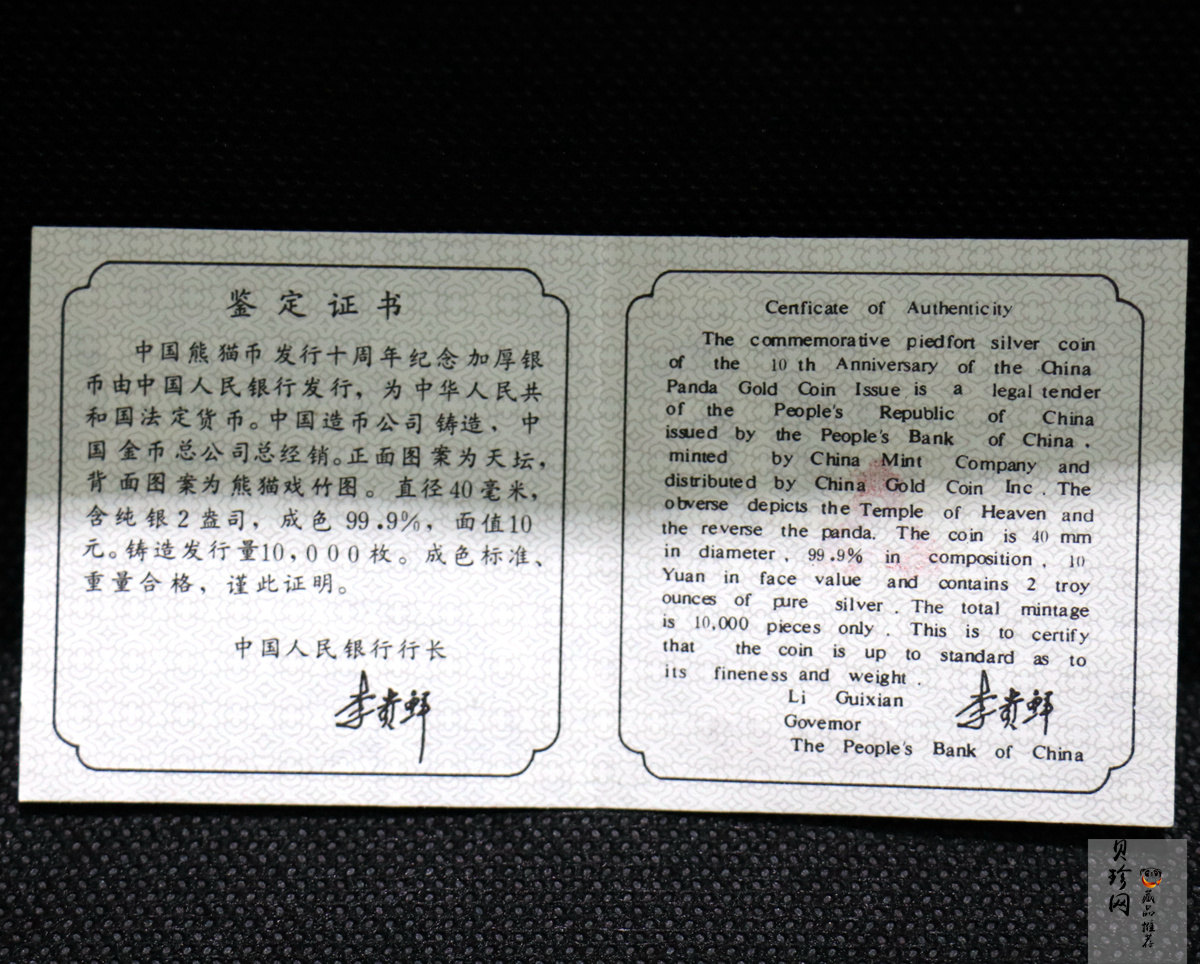 鉴定证书
中国熊猫币发行十周年纪念加厚银
币由中国人民银行发行，为中华人民共
和国法定货币。中国造币公司铸造，中
国金币总公司总经销。正面图案为天坛，
背面图案为熊猫戏竹图。直径40毫米，
含纯银2盎司，成色99.9%，面值10
元。铸造发行量10,000枚。成色标准、
重量合格，谨此证明。
中国人民银行行长
李贵鲜
Certficate of Authenticity
The commemorative piedfort silver coin
of the 10 th Anniversary of the China
Panda Gold Coin Issue is a legal tender
of the People's Republic of China
issued by the People's Bank of China,
minted by China Mint Company and
distributed by China Gold Coin Inc. The
obverse depicts the Temple of Heaven and
the reverse the panda. The coin is 40 mm
in diameter, 99.9% in composition, 10
Yuan in face value and contains 2 troy
ounces of pure silver. The total mintage
is 10,000 pieces only. This is to certify
that the coin is up to standard as to
its fineness and weight.
Li Guixian
李贵鲜
Governor
The People's Bank of China
贝珍网
藏品推荐